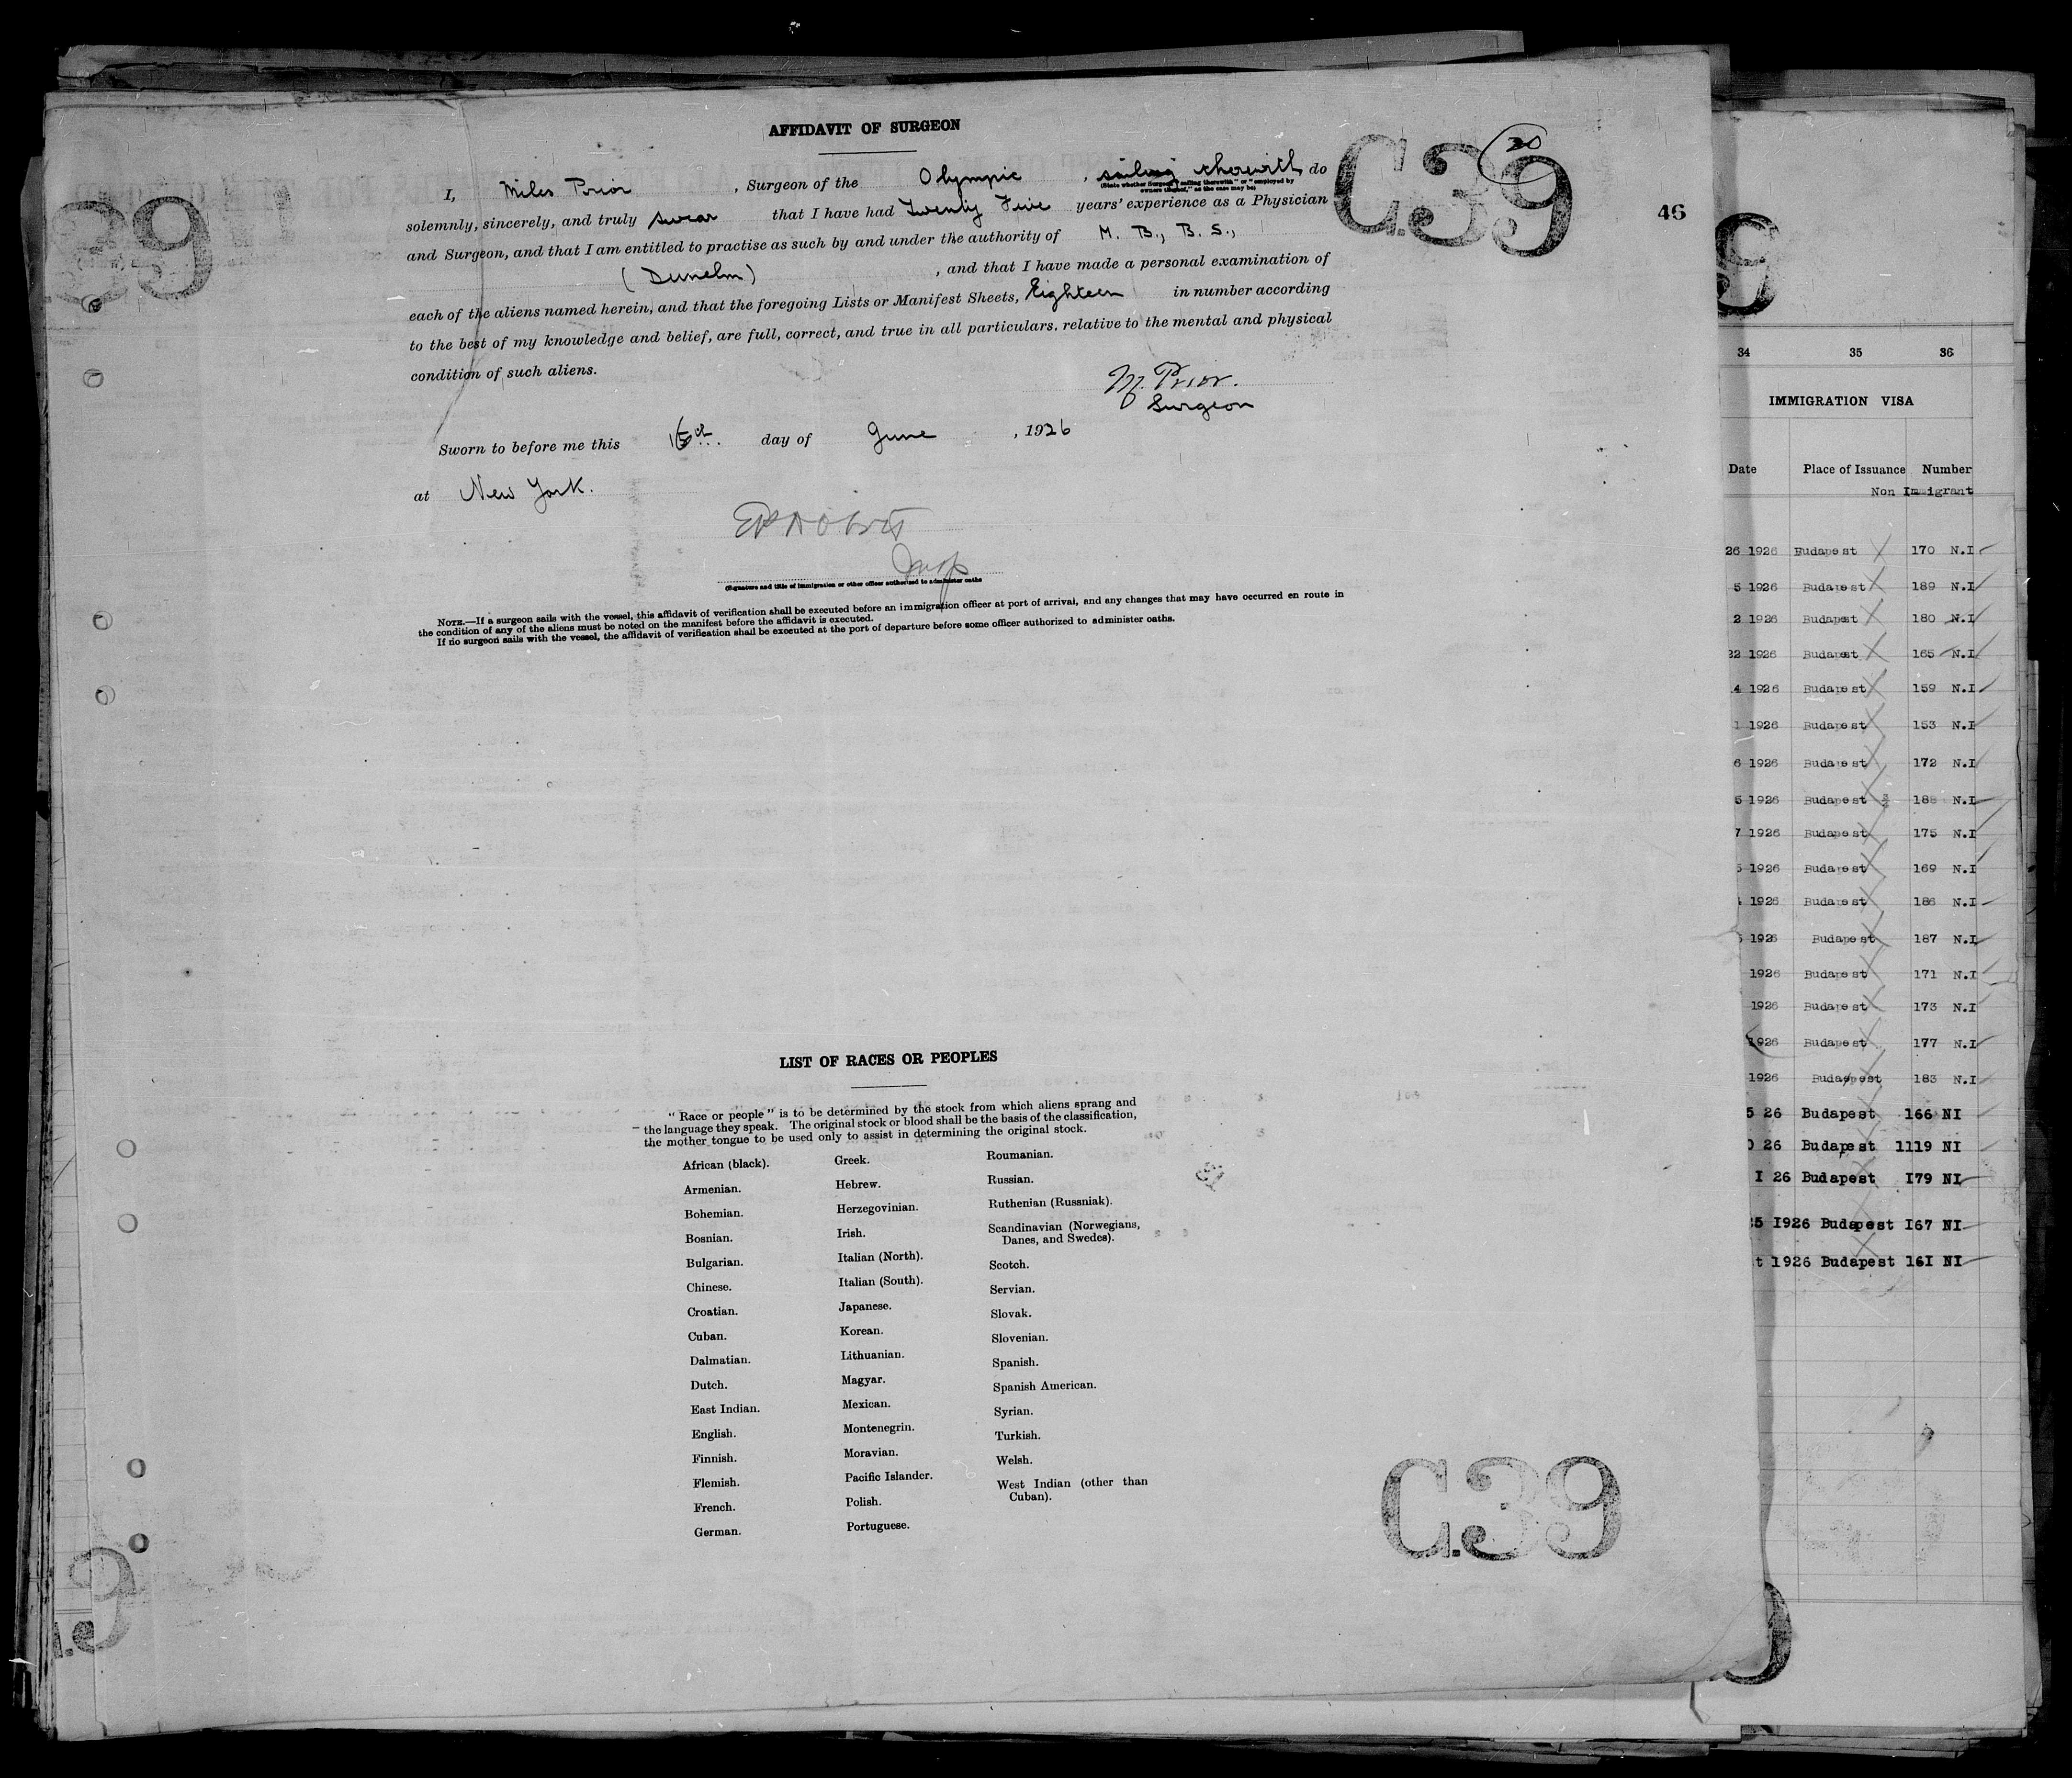 AFFIDAVIT OF SURGEON
C.39
20
46
I, Miles Prior, Surgeon of the Olympic, sailing therewith, do
(State whether Surgeon "sailing therewith" or "employed by
owners thereof," as the case may be)
solemnly, sincerely, and truly swear that I have had Twenty Five years' experience as a Physician
and Surgeon, and that I am entitled to practise as such by and under the authority of M. B., B. S.,
(Dunelm), and that I have made a personal examination of
each of the aliens named herein, and that the foregoing Lists or Manifest Sheets, Eighteen in number according
to the best of my knowledge and belief, are full, correct, and true in all particulars. relative to the mental and physical
condition of such aliens.
M. Prior.
Surgeon
Sworn to before me this day of June, 1926
at New York.
Insp
(Signature and title of immigration or other officer authorized to administer oaths
NOTE.—If a surgeon sails with the vessel, this affidavit of verification shall be executed before an immigration officer at port of arrival, and any changes that may have occurred en route in
the condition of any of the aliens must be noted on the manifest before the affidavit is executed.
If no surgeon sails with the vessel, the affidavit of verification shall be executed at the port of departure before some officer authorized to administer oaths.
LIST OF RACES OR PEOPLES
"Race or people" is to be determined by the stock from which aliens sprang and
the language they speak. The original stock or blood shall be the basis of the classification,
the mother tongue to be used only to assist in determining the original stock.
African (black).
Armenian.
Bohemian.
Bosnian.
Bulgarian.
Chinese.
Croatian.
Cuban.
Dalmatian.
Dutch.
East Indian.
English.
Finnish.
Flemish.
French.
German.
Greek.
Hebrew.
Herzegovinian.
Irish.
Italian (North).
Italian (South).
Japanese.
Korean.
Lithuanian.
Magyar.
Mexican.
Montenegrin.
Moravian.
Pacific Islander.
Polish.
Portuguese.
Roumanian.
Russian.
Ruthenian (Russniak).
Scandinavian (Norwegians,
Danes, and Swedes).
Scotch.
Servian.
Slovak.
Slovenian.
Spanish.
Spanish American.
Syrian.
Turkish.
Welsh.
West Indian (other than
Cuban).
C.39
39
9
34 35 36
IMMIGRATION VISA
Date Place of Issuance Number
Non Immigrant
26 1926 Budapest 170 N.I
5 1926 Budapest 189 N.I
2 1926 Budapest 180 N.I
22 1926 Budapest 165 N.I
4 1926 Budapest 159 N.I
1 1926 Budapest 153 N.I
6 1926 Budapest 172 N.I
5 1926 Budapest 188 N.I
7 1926 Budapest 175 N.I
5 1926 Budapest 169 N.I
1926 Budapest 186 N.I
1926 Budapest 187 N.I
1926 Budapest 171 N.I
1926 Budapest 173 N.I
1926 Budapest 177 N.I
1926 Budapest 183 N.I
5 26 Budapest 166 NI
0 26 Budapest 1119 NI
I 26 Budapest I79 NI
5 I926 Budapest I67 NI
t 1926 Budapest 16I NI